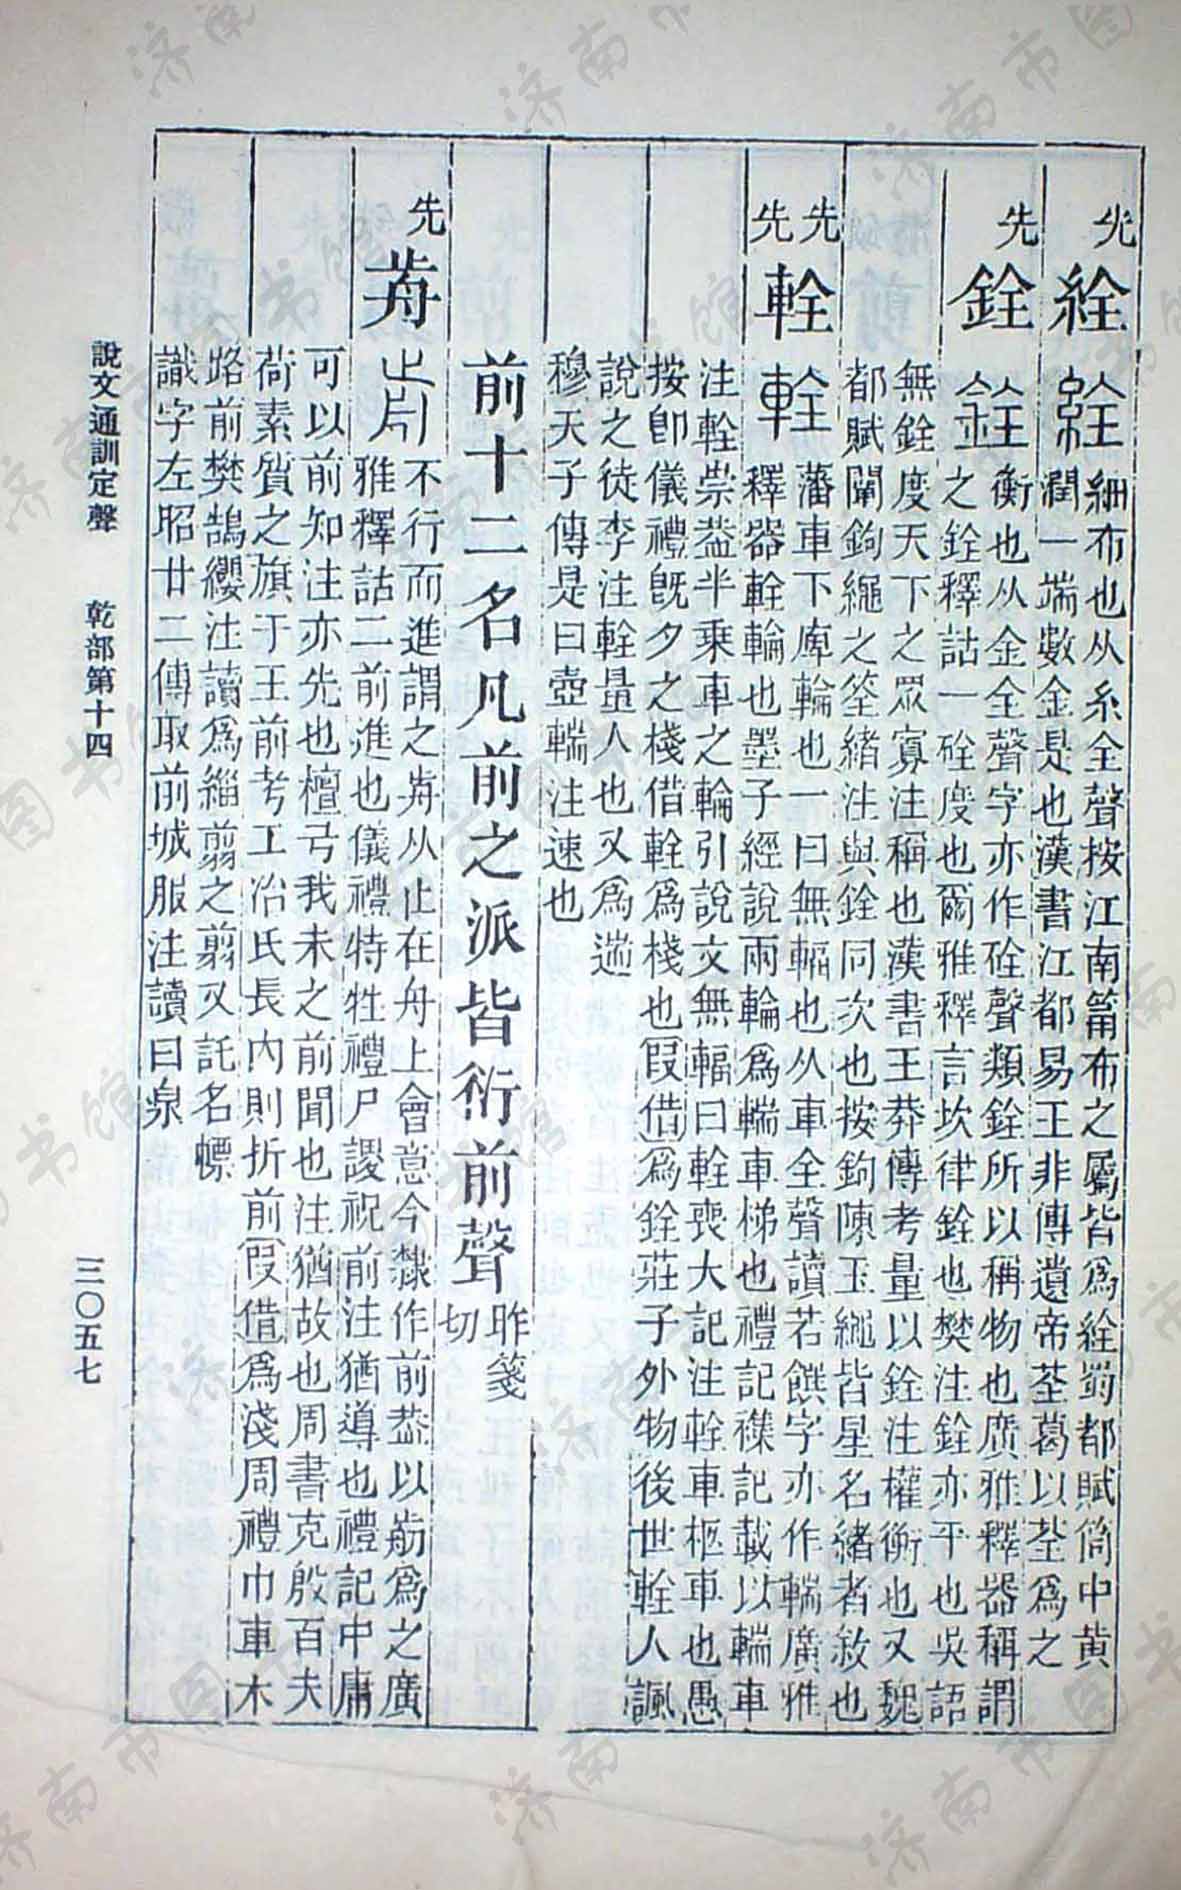 先
絟 絟 細布也从糸全聲按江南筩布之屬皆爲絟蜀都賦筒中黃
潤一端數金是也漢書江都易王非傳遺帝荃葛以荃爲之
先
銓 銓 衡也从金全聲字亦作硂聲類銓所以稱物也廣雅釋器稱謂
之銓釋詁一硂度也爾雅釋言坎律銓也樊注銓亦平也吳語
無銓度天下之眾寡注稱也漢書王莽傳考量以銓注權衡也又魏
都賦闡鉤繩之筌緒注與銓同次也按鉤陳玉繩皆星名緒者敘也
先
先
輇 輇 藩車下庳輪也一曰無輻也从車全聲讀若饌字亦作輲廣雅
釋器輇輪也墨子經說兩輪爲輲車梯也禮記襍記載以輲車
注輇崇葢半乘車之輪引說文無輻曰輇喪大記注輇車柩車也愚
按卽儀禮旣夕之棧借輇爲棧也叚借爲銓莊子外物後世輇人諷
說之徒李注輇量人也又爲遄
穆天子傳是曰壺輲注速也
前十二名凡前之派皆衍前聲 昨箋
切
先
歬 歬 不行而進謂之歬从止在舟上會意今隸作前葢以剪爲之廣
雅釋詁二前進也儀禮特牲禮尸謖祝前注猶導也禮記中庸
可以前知注亦先也檀弓我未之前聞也注猶故也周書克殷百夫
荷素質之旗于王前考工冶氏長內則折前叚借爲淺周禮巾車木
路前樊鵠纓注讀爲緇翦之翦又託名幖
識字左昭廿二傳取前城服注讀曰泉
說文通訓定聲 乾部第十四
三〇五七
济南市图书馆